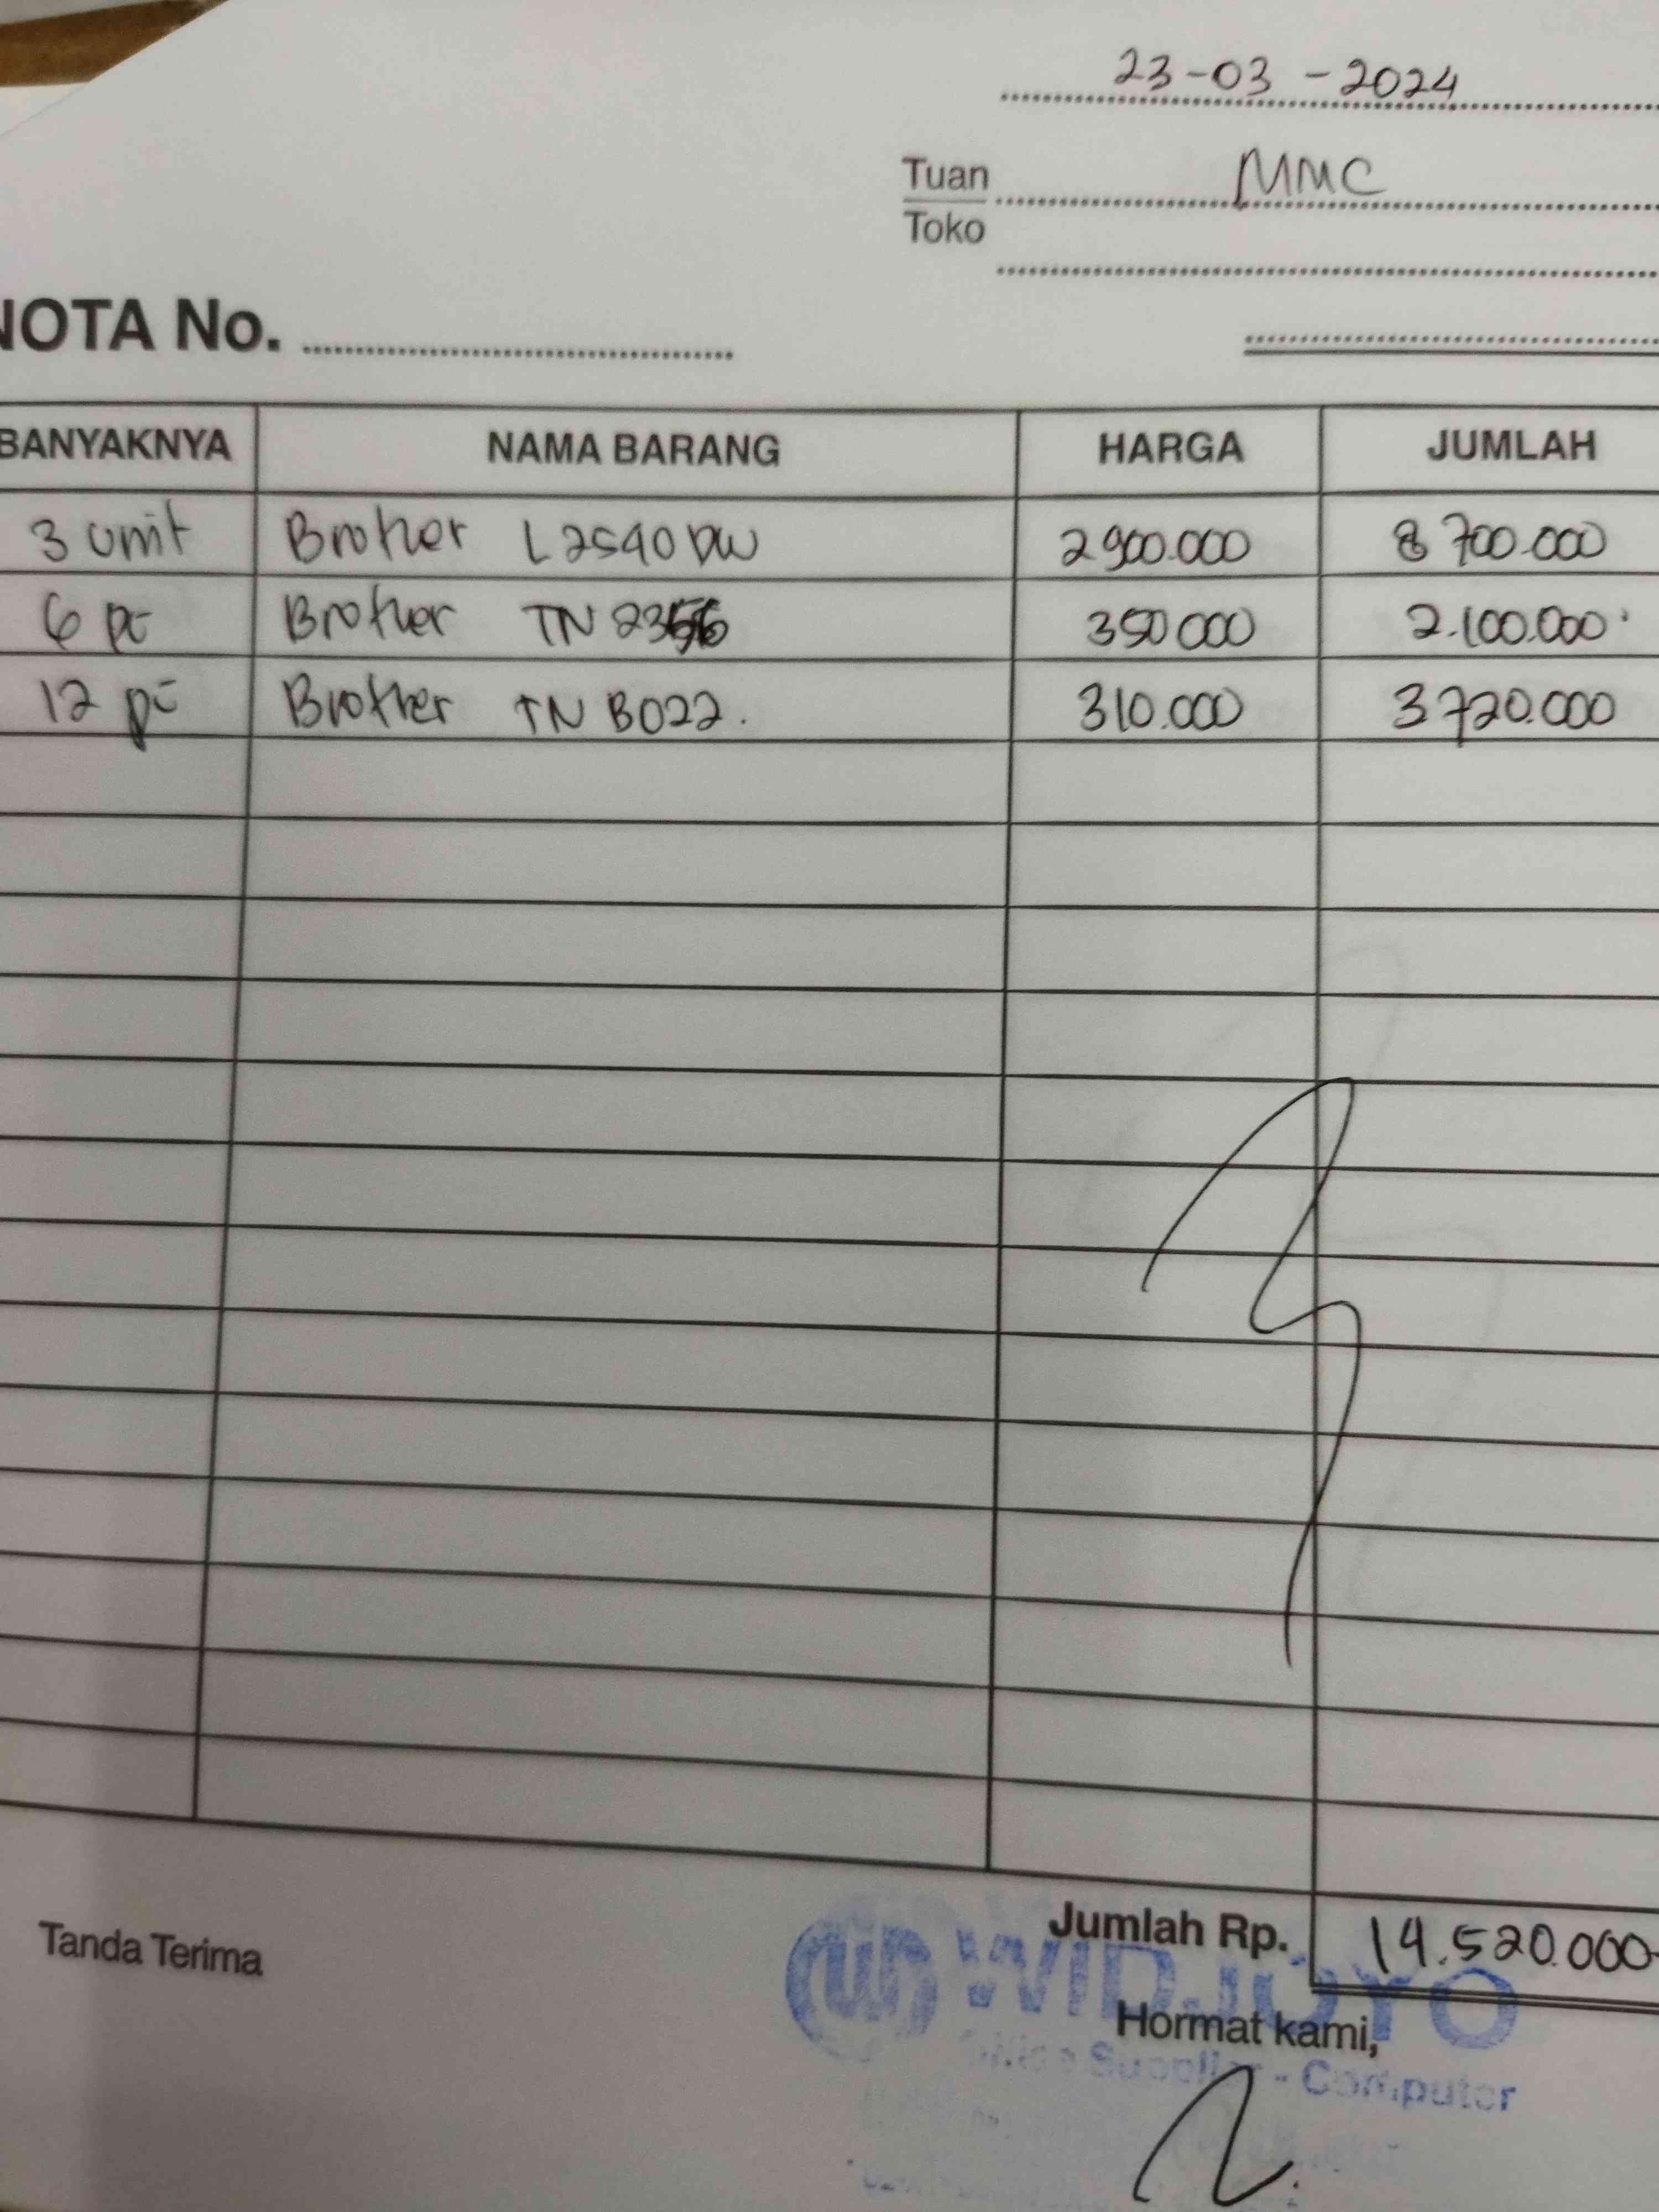 23-03-2024
Tuan MMC
Toko
NOTA No.
BANYAKNYA NAMA BARANG HARGA JUMLAH
3 unit Brother L2540DW 2900.000 8 700.000
6 pc Brother TN 2356 350 000 2.100.000
12 pc Brother TN B022. 310.000 3720.000
Jumlah Rp. 14.520.000
Tanda Terima
WIDJOYO
Hormat kami,
Office Supplier - Computer